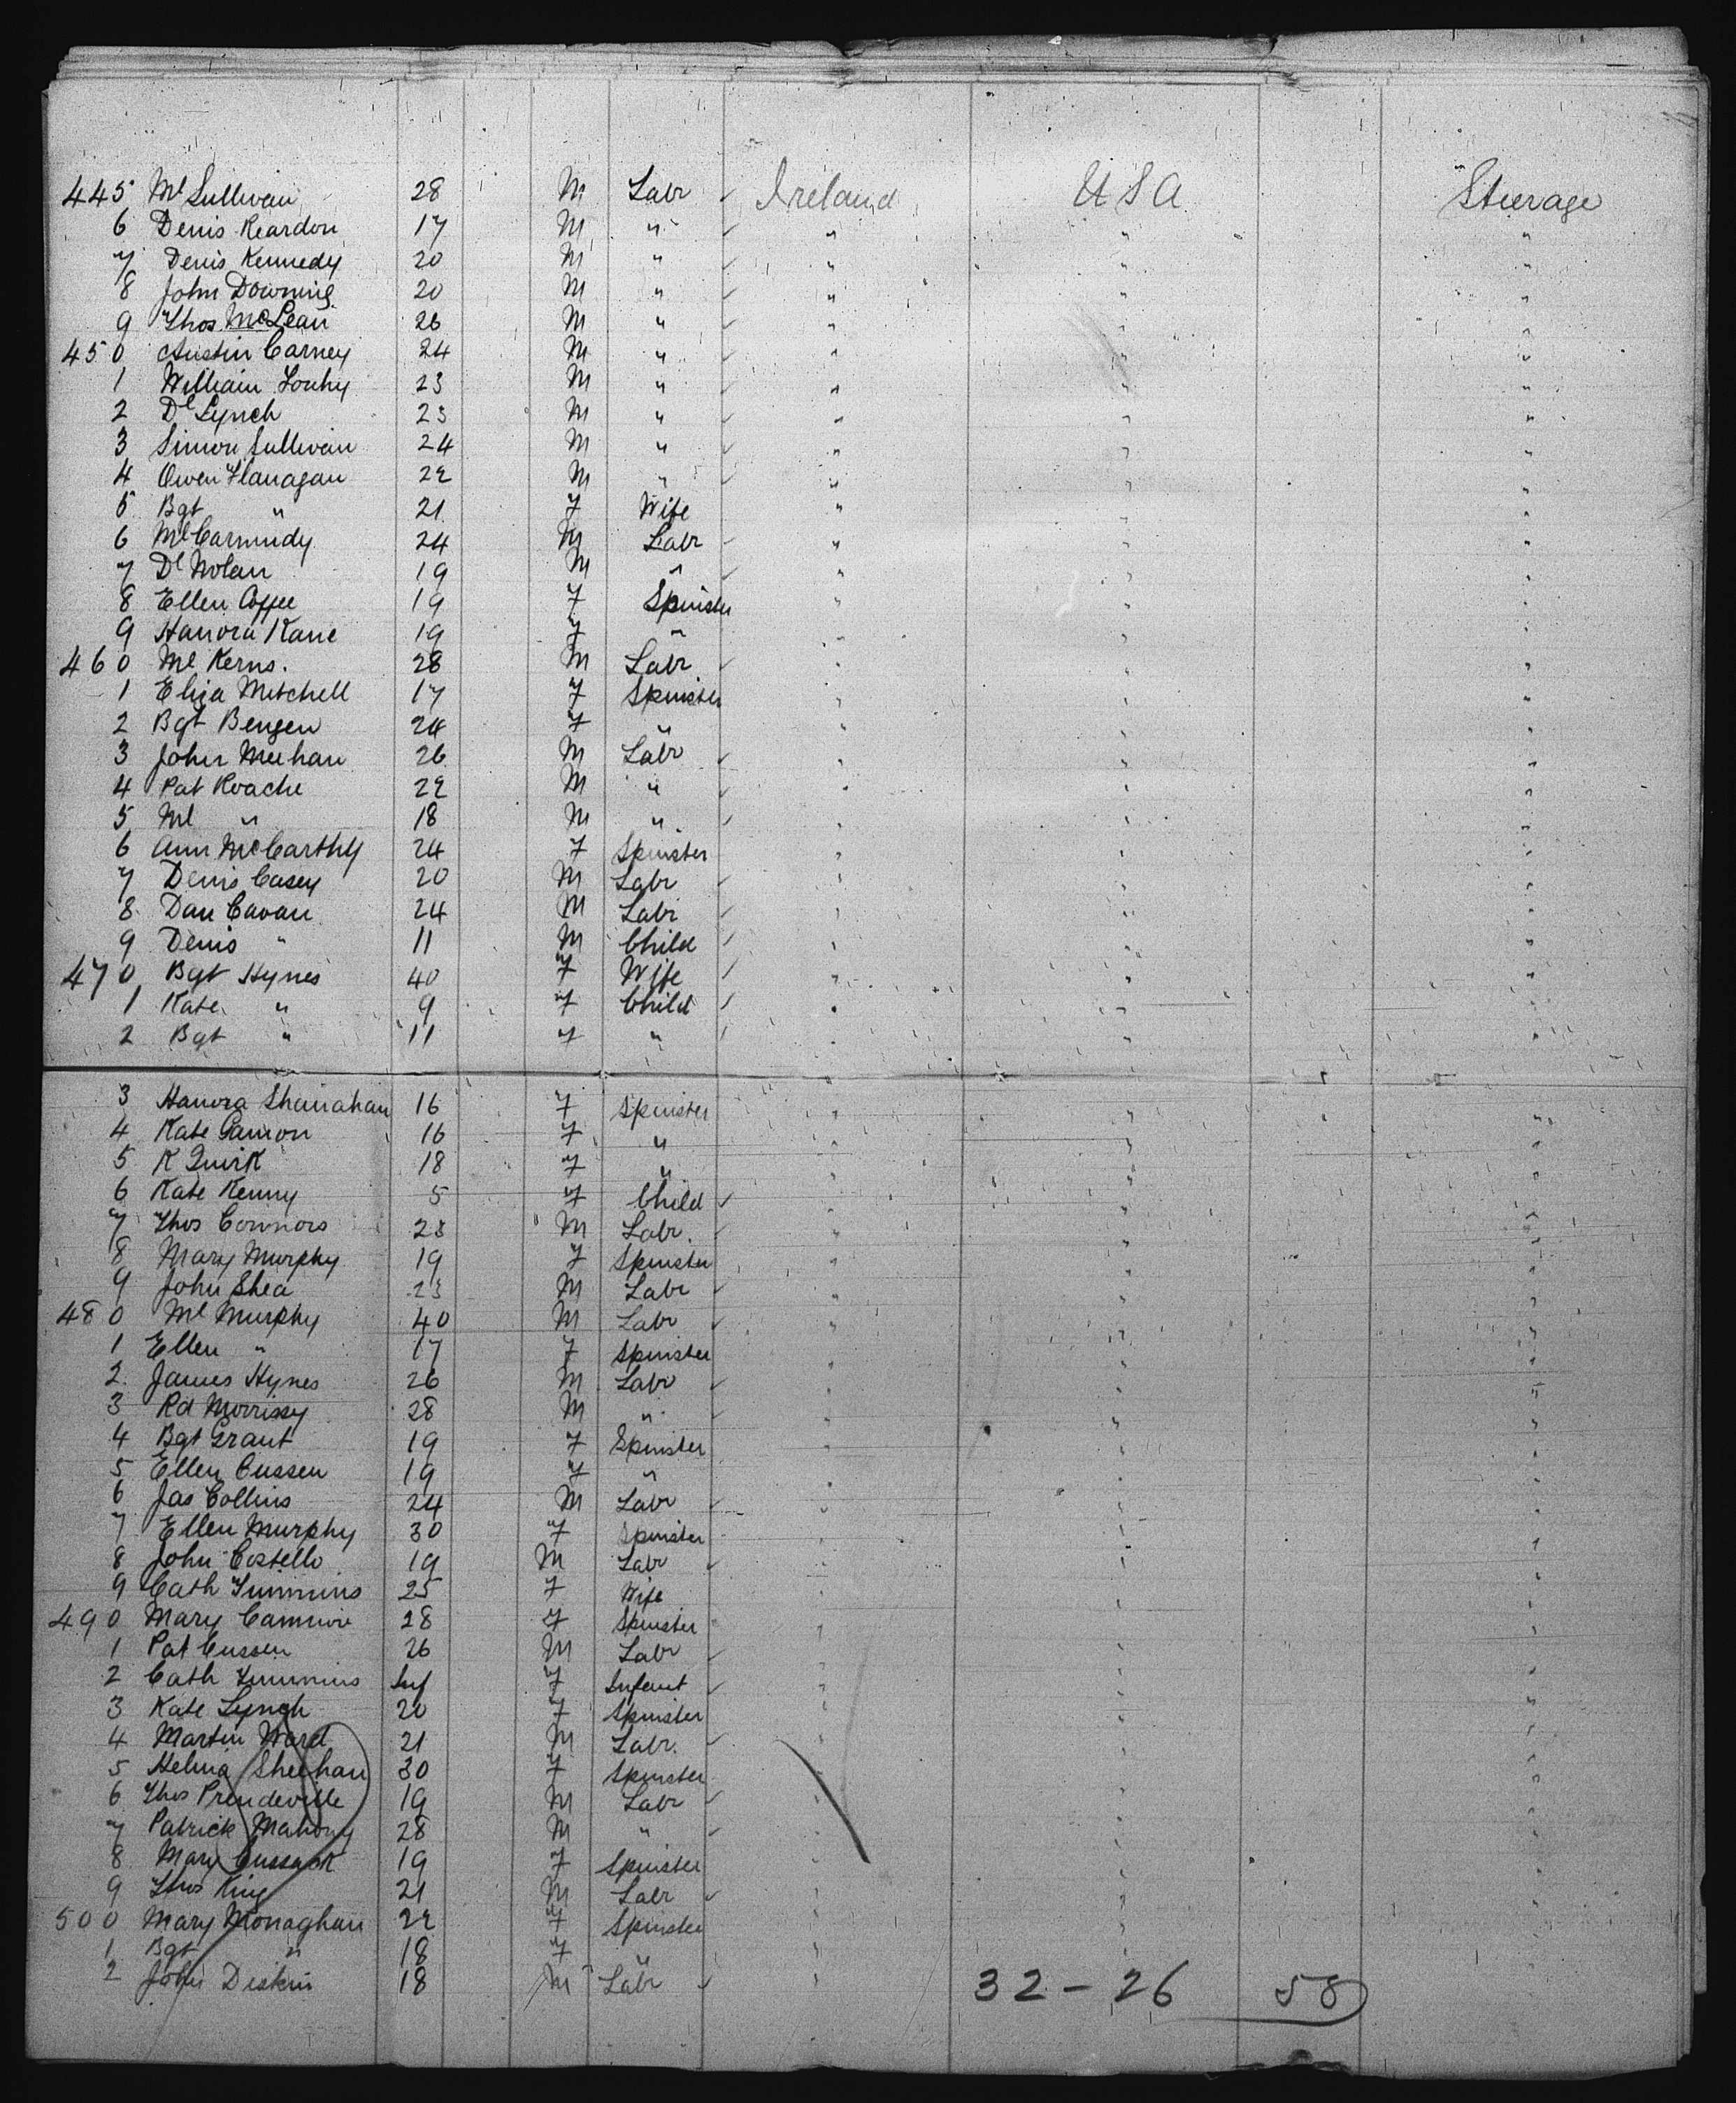 445 Ml Sullivan 28 M Labr Ireland USA Steerage
6 Denis Reardon 17 M " " " "
7 Denis Kennedy 20 M " " " "
8 John Downing 20 M " " " "
9 Thos McLean 26 M " " " "
450 Austin Carney 24 M " " " "
1 William 23 M " " " "
2 Dl Lynch 23 M " " " "
3 Simon Sullivan 24 M " " " "
4 Owen Flanagan 22 M " " " "
5 Bgt " 21 F Wife " " "
6 Ml 24 M Labr " " "
7 Dl Nolan 19 M " " " "
8 Ellen Coffee 19 F Spinster " " "
9 Hanora Kane 19 F " " " "
460 Ml Kerns. 28 M Labr " " "
1 Eliza Mitchell 17 F Spinster " " "
2 Bgt 24 F " " " "
3 John Meehan 26 M Labr " " "
4 Pat Roache 22 M " " " "
5 Ml " 18 M " " " "
6 Ann McCarthy 24 F Spinster " " "
7 Denis Casey 20 M Labr " " "
8 Dan Cavan 24 M Labr " " "
9 Denis " 11 M Child " " "
470 Bgt Hynes 40 F Wife " " "
1 Kate " 9 F Child " " "
2 Bgt " 11 F " " " "
3 Hanora Shanahan 16 F Spinster " " "
4 Kate 16 F " " " "
5 K Quirk 18 F " " " "
6 Kate Kenny 5 F Child " " "
7 Thos Connors 23 M Labr. " " "
8 Mary Murphy 19 F Spinster " " "
9 John Shea 23 M Labr " " "
480 Ml Murphy 40 M Labr " " "
1 Ellen " 17 F Spinster " " "
2 James Hynes 26 M Labr " " "
3 Rd Morrissy 28 M " " " "
4 Bgt Grant 19 F Spinster " " "
5 Ellen Cussen 19 F " " " "
6 Jas Collins 24 M Labr " " "
7 Ellen Murphy 30 F Spinster " " "
8 John Costello 19 M Labr " " "
9 Cath Timmins 25 F Wife " " "
490 Mary 28 F Spinster " " "
1 Pat Cussen 26 M Labr " " "
2 Cath Timmins Inf F Infant " " "
3 Kate Lynch 20 F Spinster " " "
4 Martin Ward 21 M Labr. " " "
5 Helena Sheehan 30 F Spinster " " "
6 Thos Prendeville 19 M Labr " " "
7 Patrick Mahony 28 M " " " "
8 Mary Cussack 19 F Spinster " " "
9 Thos King 21 M Labr " " "
500 Mary Monaghan 22 F Spinster " " "
1 Bgt " 18 F " " " "
2 John Diskin 18 M Labr "
32 - 26 58